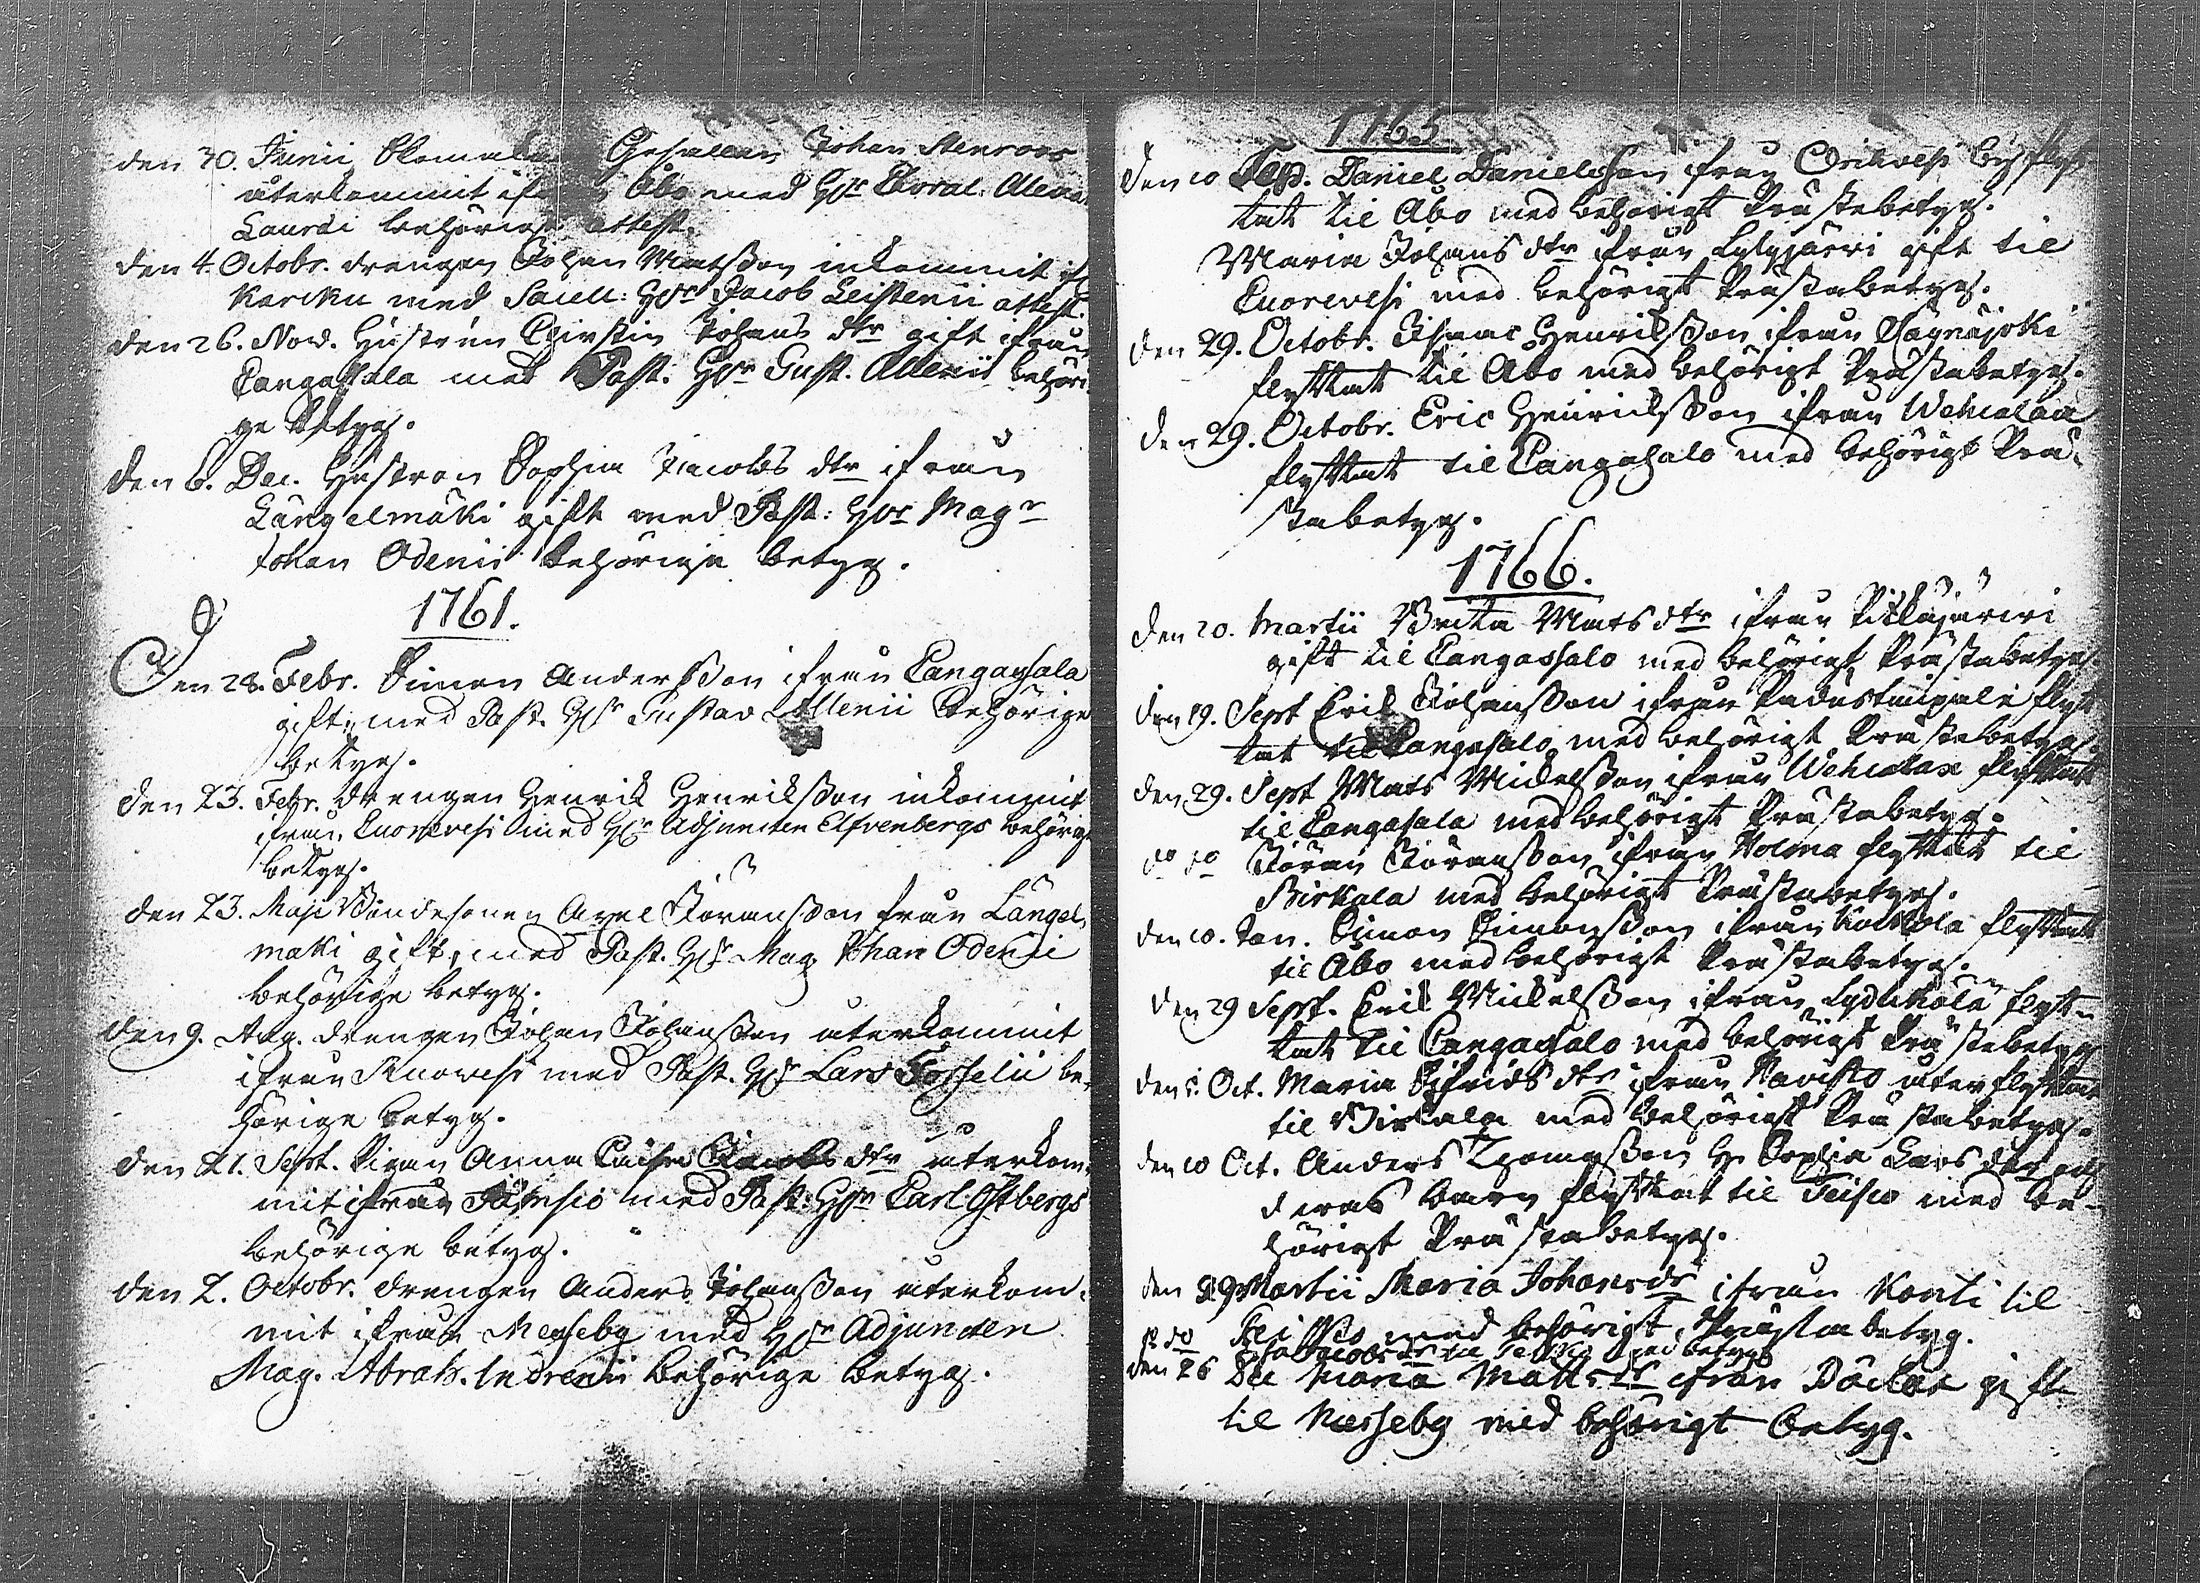 den 30. Junii Skomaka Gesällen Johan Stenroos
återkommit if Åbo med HJr Theol: Alenii
Laurei behörige attest.
den 4. Octobr. drengen Johan Matsson inkommit if
Karcku med Sacell: HJr Jacob Leistenii attest.
den 26. Nov. Hustrun Christin Johans dtr gift ifrån
Cangasala med Past: HJr Gust. Allenii behöri
ge betyg.
den 6. Dec. Hustron Sophia Jacobs dtr ifrån
Längelmäki gift med Past: HJr Magr
Johan Odenii behörige betyg.
1761.
Den 28. Febr. Simon Andersson ifrån Cangasala
gift, med Past. HJr Gustav Allenii behörige
betyg.
den 23. Febr. drengen Henrik Henriksson inkommit
ifrån Kuorevesi med HJr Adjuncten Elfvenbergs behörige
betyg.
den 23. Maji Bondesonen Axel Jöransson från Längel,
mäki gift, med Past. HJr Mag. Johan Odenii
behörige betyg.
den 9. Aug. drengen Johan Johansson återkommit
ifrån Ruovesi med Past. HJr Lars Fosselii be,
hörige betyg.
den 21. Sept. Pigan Anna Caisa Jacobs dtr återkom,
mit ifrån Jämsiö med Past: HJr Carl Ostbergs
behörige betyg.
den 2. Octobr. drengen Anders Johansson återkom,
mit ifrån Messeby med HJr Adjuncten
Mag. Abrah. Indrenii behörige betyg.
1765
Den 10 Daniel Danielsson från Orihvesi by flyt
tat til Åbo med behörigt Prästabetyg.
Maria Johans dtr ifrån Lylyjärvi gift til
Cuorevesi med behörigt Prästabetyg.
den 29. Octobr. Isaac Henriksson ifrån Säynäjoki
flyttat til Åbo med behörigt Prästabetyg.
den 29. Octobr. Eric Henricksson ifrån Wehcalax
flyttat til Cangasalo med behörigt Prä,
stabetyg.
1766.
den 20. Martii Brita Mats dtr ifrån Pitkäjärvi
gift til Cangassalo med behörigt Prästabetyg
den 29. Sept Erik Johansson ifrån flyt
tat til Cangasalo med behörigt Prästabetyg.
den 29. Sept Mats Mickelsson ifrån Wehcalax flyttat
til Cangasala med behörigt Prästabetyg.
do do Jöran Jöransson ifrån Holma flyttat til
Birkala med behörigt Prästabetyg.
den 10. Jan. Simon Simonsson ifrån flyttat
til Åbo med behörigt Prästabetyg.
den 29 Sept. Erik Mickelsson ifrån Lydikälä flyt-
tat til Cangasalo med behörigt Prästabetyg
den 5. Oct. Maria Sifrids dtr ifrån återflyttat
til Birkala med behörigt Prästabetyg.
den 10 Oct. Anders Thomasson H. Sophia Lars dtr och
deras barn flyttat til Teisco med be-
hörigt Prästabetyg.
den 29 Martii Maria Johansdr ifrån Konti til
Teisko med behörigt Prästabetyg.
do do Jacobs dr til med betyg
den 26 Dec Maria Matts dr ifrån gift
til Messeby med behörigt betyg.